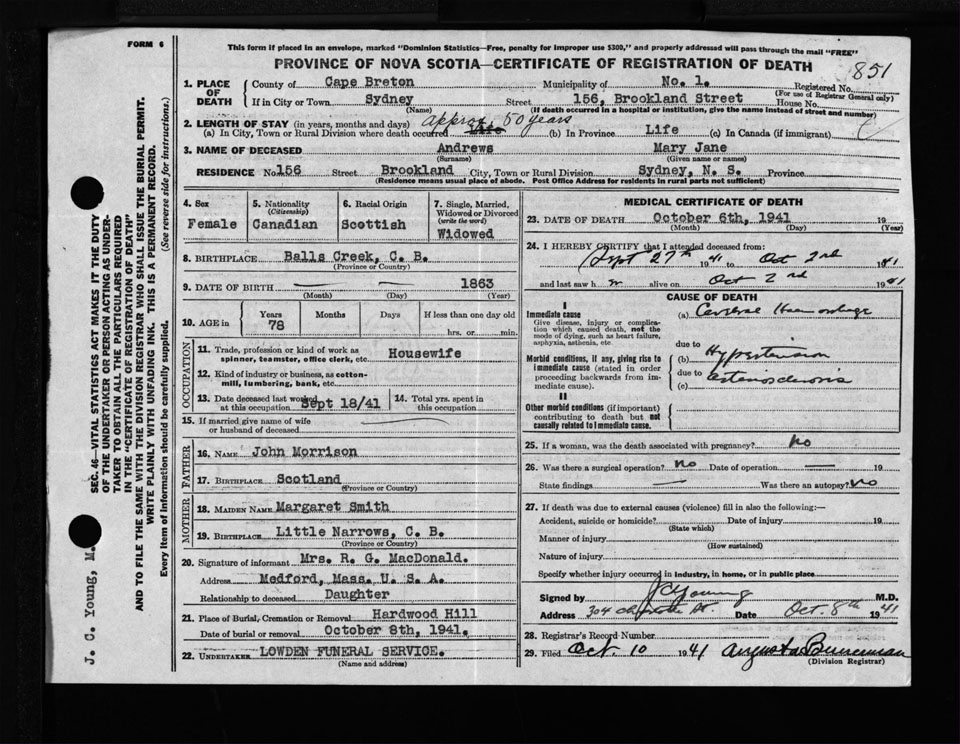 FORM 6
This form if placed in an envelope, marked "Dominion Statistics—Free, penalty for improper use $300," and properly addressed will pass through the mail "FREE"
PROVINCE OF NOVA SCOTIA—CERTIFICATE OF REGISTRATION OF DEATH
851
1. PLACE OF DEATH
County of Cape Breton Municipality of No. 1. Registered No.
(For use of Registrar General only)
If in City or Town Sydney Street 156, Brookland Street House No.
(Name) (If death occurred in a hospital or institution, give the name instead of street and number)
2. LENGTH OF STAY (in years, months and days) approx. 50 years
(a) In City, Town or Rural Division where death occurred Life (b) In Province Life (c) In Canada (if immigrant)
3. NAME OF DECEASED Andrews Mary Jane
(Surname) (Given name or names)
RESIDENCE No. 156 Street Brookland City, Town or Rural Division Sydney, N. S. Province
(Residence means usual place of abode. Post Office Address for residents in rural parts not sufficient)
4. Sex
Female
5. Nationality
(Citizenship)
Canadian
6. Racial Origin
Scottish
7. Single, Married, Widowed or Divorced
(write the word)
Widowed
8. BIRTHPLACE Balls Creek, C. B.
(Province or Country)
9. DATE OF BIRTH 1863
(Month) (Day) (Year)
10. AGE in Years Months Days If less than one day old
78 hrs. or min.
OCCUPATION
11. Trade, profession or kind of work as spinner, teamster, office clerk, etc. Housewife
12. Kind of industry or business, as cotton-mill, lumbering, bank, etc.
13. Date deceased last worked at this occupation Sept 18/41
14. Total yrs. spent in this occupation
15. If married give name of wife or husband of deceased
FATHER
16. NAME John Morrison
17. BIRTHPLACE Scotland
(Province or Country)
MOTHER
18. MAIDEN NAME Margaret Smith
19. BIRTHPLACE Little Narrows, C. B.
(Province or Country)
20. Signature of informant Mrs. R. G. MacDonald.
Address Medford, Mass. U. S. A.
Relationship to deceased Daughter
21. Place of Burial, Cremation or Removal Hardwood Hill
Date of burial or removal October 8th, 1941.
22. UNDERTAKER LOWDEN FUNERAL SERVICE.
(Name and address)
MEDICAL CERTIFICATE OF DEATH
23. DATE OF DEATH October 6th, 1941 19
(Month) (Day) (Year)
24. I HEREBY CERTIFY that I attended deceased from:
Sept 27th 1941 to Oct 2nd 1941
and last saw h alive on Oct 2nd 1941
CAUSE OF DEATH
I
Immediate cause
Give disease, injury or complication which caused death, not the mode of dying, such as heart failure, asphyxia, asthenia, etc.
(a) Cerebral Haemorrhage
due to
Morbid conditions, if any, giving rise to immediate cause (stated in order proceeding backwards from immediate cause).
(b) Hypertension
due to
(c) arteriosclerosis
II
Other morbid conditions (if important) contributing to death but not causally related to immediate cause.
25. If a woman, was the death associated with pregnancy? No
26. Was there a surgical operation? No Date of operation — 19
State findings — Was there an autopsy? No
27. If death was due to external causes (violence) fill in also the following:—
Accident, suicide or homicide? Date of injury 19
(State which)
Manner of injury
(How sustained)
Nature of injury
Specify whether injury occurred in industry, in home, or in public place
Signed by J C Young M.D.
Address 304 Charlotte St. Date Oct. 8th 1941
28. Registrar's Record Number
29. Filed Oct. 10 1941 Augusta
(Division Registrar)
SEC. 46—VITAL STATISTICS ACT MAKES IT THE DUTY
OF THE UNDERTAKER OR PERSON ACTING AS UNDER-
TAKER TO OBTAIN ALL THE PARTICULARS REQUIRED
IN THE "CERTIFICATE OF REGISTRATION OF DEATH"
AND TO FILE THE SAME WITH THE DIVISION REGISTRAR WHO SHALL ISSUE THE BURIAL PERMIT.
WRITE PLAINLY WITH UNFADING INK. THIS IS A PERMANENT RECORD.
Every item of information should be carefully supplied. (See reverse side for instructions.)
J. C. Young, M.